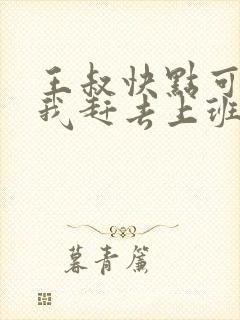 王叔快點可
我赶去上班
暮青簾